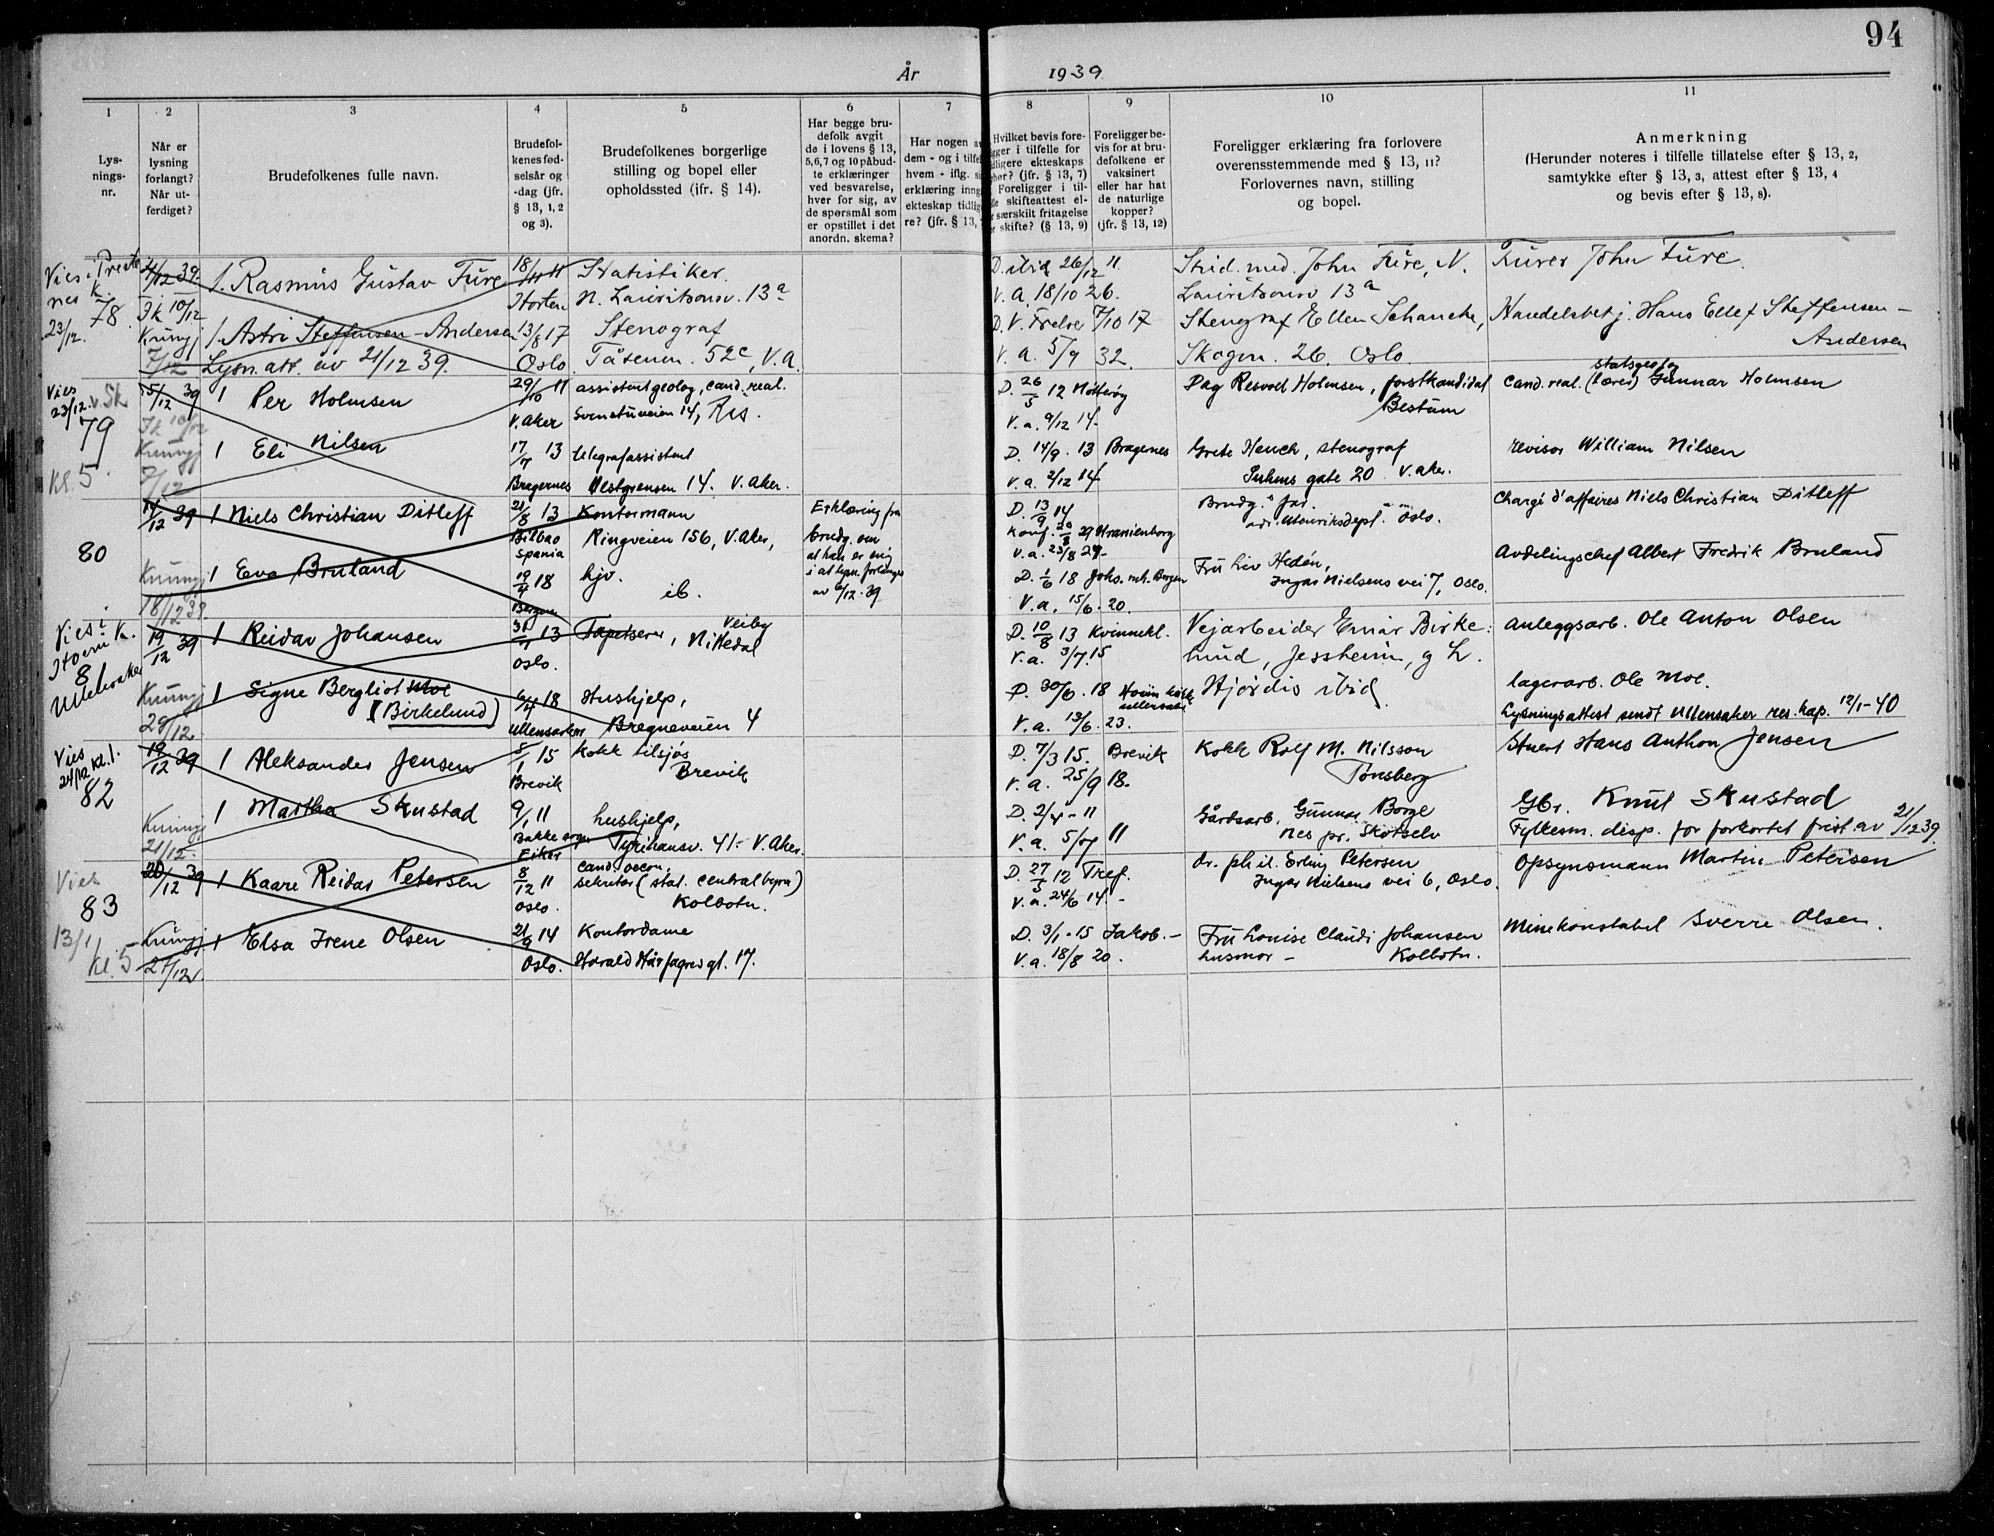 94
År 1939
1 2 3 4 5 6 7 8 9 10 11
Lys-
nings-
nr.
Når er
lysning
forlangt?
Når ut-
ferdiget?
Brudefolkenes fulle navn.
Brudefol-
kenes fød-
selsår og
-dag (jfr.
§ 13, 1, 2
og 3).
Brudefolkenes borgerlige
stilling og bopel eller
opholdssted (jfr. § 14).
Har begge bru-
defolk avgit
de i lovens § 13,
5, 6, 7 og 10 påbud-
te erklæringer
ved besvarelse,
hver for sig, av
de spørsmål som
er opstillet i det
anordn. skema?
Har nogen
dem - og i tilfel
hvem - iflg.
erklæring inng
ekteskap tidlig
re? (jfr. § 13,
Hvilket bevis fore-
ligger i tilfelle for
tidligere ekteskaps
(jfr. § 13, 7)
Foreligger i til-
skifteattest el-
særskilt fritagelse
skifte? (§ 13, 9)
Foreligger be-
vis for at bru-
defolkene er
vaksinert
eller har hat
de naturlige
kopper?
(jfr. § 13, 12)
Foreligger erklæring fra forlovere
overensstemmende med § 13, 11?
Forlovernes navn, stilling
og bopel.
Anmerkning
(Herunder noteres i tilfelle tillatelse efter § 13, 2,
samtykke efter § 13, 3, attest efter § 13, 4
og bevis efter § 13, 8).
Vies i
nes k.
78
23/12.
4/12 39.
10/12
7/12
1. Rasmus Gustav Fure
18/11 11
Horten
Statistiker
N. Lauritsonsv. 13a
D. ibid 26/12 11.
V. A. 18/10 26.
Stud. med. John Fure, N.
Lauritsonsv 13a
Furer John Fure.
1. Astri Steffensen-Andersen
Lysn.att. av 21/12 39.
13/8 17
Oslo
Stenograf
Tåsenv. 52c, V.A.
D. V. Frelse 7/10 17
V. a. 5/9 32.
Stenograf Ellen Schancke,
Skogv. 26 Oslo
Handelsbetj. Hans Ellef Steffensen-
Andersen
Vies
23/12.
79
Kl. 5.
5/12 39
10/12
7/12
1 Per Holmsen
29/10 11
V. Aker
assistentgeolog, cand. real.
Svenstuveien 14, Ris.
D. 26/5 12
V. a. 9/12 14.
Dag Resvoll Holmsen, forstkandidat
Bestum
statsgeolog
Cand. real. (lærer) Gunnar Holmsen
1 Eli Nilsen
17/7 13
Bragernes
telegrafassistent
Vestgrensen 14. V. Aker.
D. 14/9. 13 Bragernes
V. a. 2/12 14
Grete Henck, stenograf
Suhms gate 20 V. aker.
revisor William Nilsen
80
14/12 39
18/12 39
1 Niels Christian Ditleff
21/8 13
Bilbao
Spania
Kontormann
Ringveien 156, V. Aker,
Erklæring fra
brudg. om
at han er enig
i at lysn. forlanges
av /12.39
D. 13/9 14
Konf. 29 Uranienborg
V. a. 23/8 29-
Brudg.s far.
adr. Utenriksdept. Oslo.
Chargé d'affaires Niels Christian Ditleff
1 Eva Bruland
19/4 18
Bergen
hjv.
ib.
D. 1/6 18 Johs. mh. Bergen
V. a. 15/6. 20.
Fru Liv Hedén,
Ingar Nielsens vei 7, Oslo.
Avdelingschef Albert Fredrik Bruland
Vies i
Hovin k.
81
Ullensaker
19/12 39
29/12
1 Reidar Johansen
13
Oslo.
Tapetserer, Veiby
Nittedal
D. 10/8 13 Kvinnekl.
V. a. 3/7. 15
Veiarbeider Einar Birke-
lund, Jessheim, og h.
Anleggsarb. Ole Anton Olsen
1 Signe Bergliot Moe
(Birkelund)
/4 18
Ullensaker
Hushjelp,
Bregneveien 4
D. 30/6. 18 Hovin kirke
Ullensaker
V. a. 13/6. 23.
Hjørdis ibid
lagerarb. Ole Moe.
Lysningsattest sendt Ullensaker res. kap. 12/1-40
Vies
24/12 kl. 1.
82
19/12 39
21/12.
1 Aleksander Jensen
5/1 15
Brevik
kokk tilsjøs
Brevik
D. 7/3 15. Brevik
V. a. 25/9 18.
Kokk Rolf M. Nilsson
Tønsberg
Stuert Hans Anthon Jensen
1 Martha Skustad
9/1 11
Bakke sogn
Eiker
hushjelp,
Tyrihansv. 41- V. Aker.
D. 2/4-11
V. a. 5/7 11
Gårdsarb. Gunnar Borge
nes pr. Skotselv
Gbr. Knut Skustad
Fylkesm. disp. for forkortet frist av 21/12 39.
Vies
83
13/1
kl. 5
20/12 39
27/12.
1 Kaare Reidar Petersen
8/12 11
Oslo.
Cand. oecon.
sekretær (stat. centralbyrå)
Kolbotn.
D. 27/3 12 Tref.
V. a. 24/6 14.-
dr. phil. Erling Petersen
Ingar Nielsens vei 6, Oslo.
Opsynsmann Martin Petersen
1 Elsa Irene Olsen
21/9 14
Oslo.
Kontordame
Harald Hårfagres gt. 17.
D. 3/1-15 Jakob.-
V. a. 18/8 20.
Fru Louise Claudi Johansen
husmor- Kolbotn.
Minekonstabel Sverre Olsen.